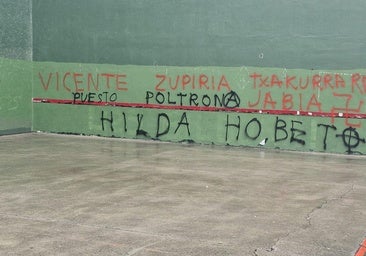 VICENTE ZUPIRIA TXAKURRA
PUESTO POLTRONA JABIA
HILDA HO.BETO